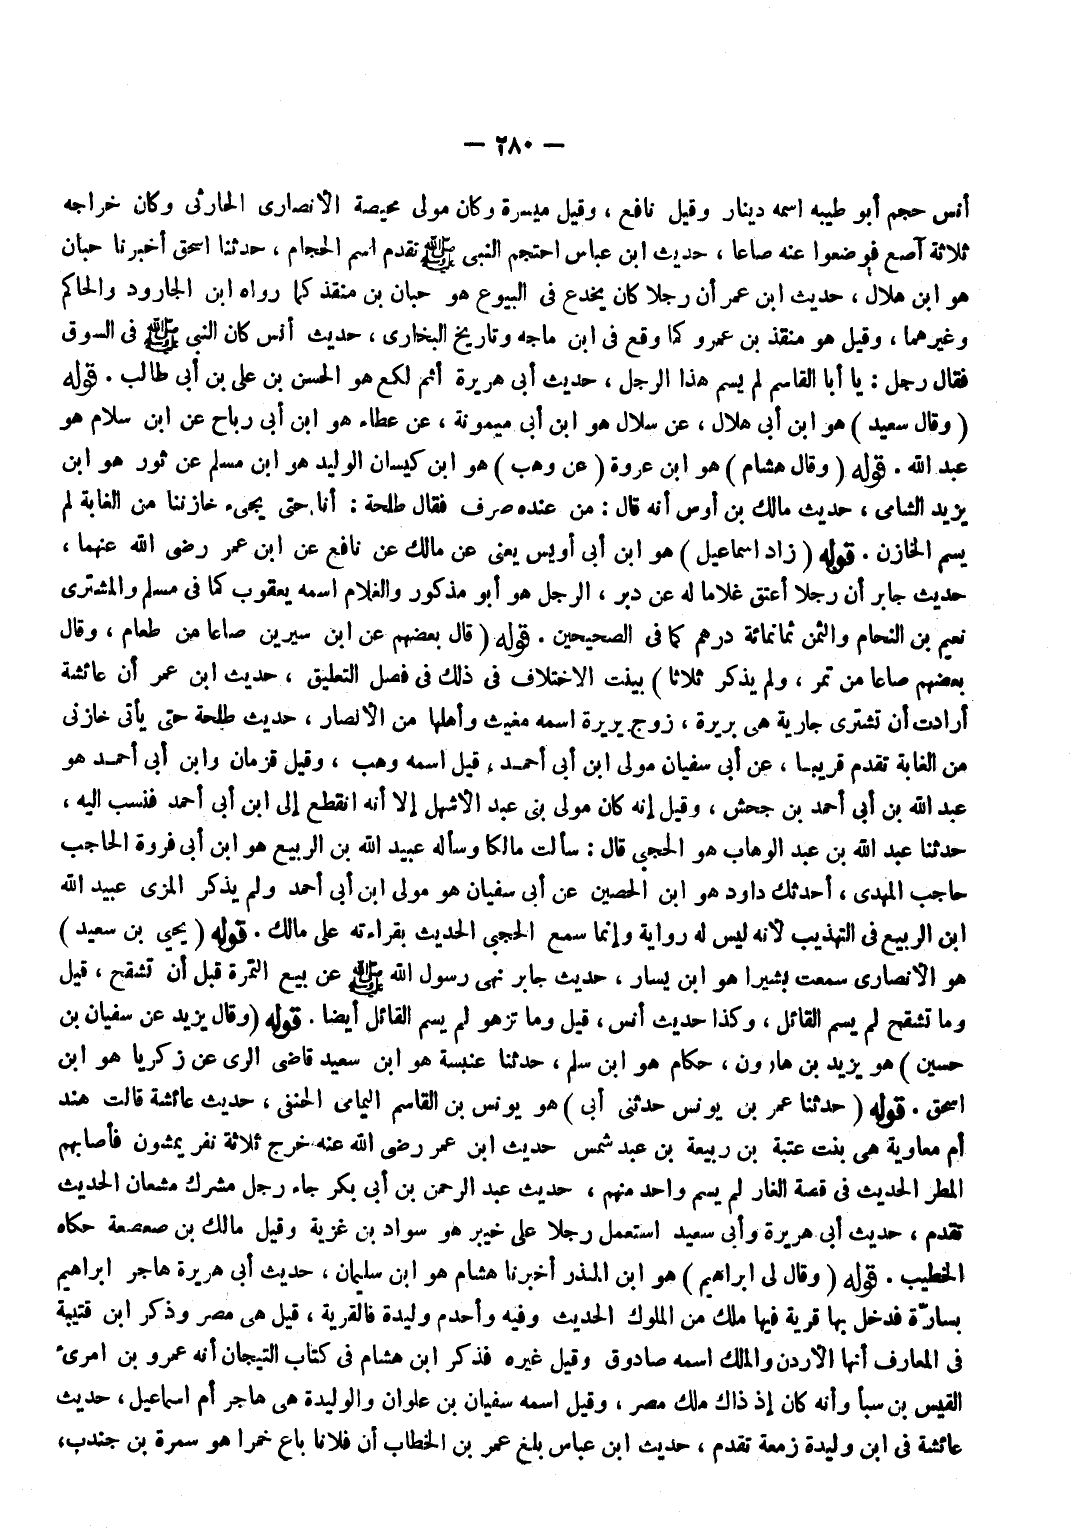 — ٢٨٠ —
أنس حجم أبو طيبه اسمه دينار وقيل نافع ، وقيل ميسرة وكان مولى محيصة الأنصارى الحارثى وكان خراجه
ثلاثة آصع فوضعوا عنه صاعا ، حديث ابن عباس احتجم النبى ﷺ تقدم اسم الحجام ، حدثنا اسحق أخبرنا حبان
هو ابن هلال ، حديث ابن عمر أن رجلا كان يخدع فى البيوع هو حبان بن منقذ كما رواه ابن الجارود والحاكم
وغيرهما ، وقيل هو منقذ بن عمرو كما وقع فى ابن ماجه وتاريخ البخارى ، حديث أنس كان النبى ﷺ فى السوق
فقال رجل : يا أبا القاسم لم يسم هذا الرجل ، حديث أبى هريرة أثم لكع هو الحسن بن على بن أبى طالب . قوله
( وقال سعيد ) هو ابن أبى هلال ، عن سلال هو ابن أبى ميمونة ، عن عطاء هو ابن أبى رباح عن ابن سلام هو
عبد الله . قوله ( وقال هشام ) هو ابن عروة ( عن وهب ) هو ابن كيسان الوليد هو ابن مسلم عن ثور هو ابن
يزيد الشامى ، حديث مالك بن أوس أنه قال : من عنده صرف فقال طلحة : أنا حتى يجىء خازننا من الغابة لم
يسم الخازن . قوله ( زاد اسماعيل ) هو ابن أبى أويس يعنى عن مالك عن نافع عن ابن عمر رضى الله عنهما ،
حديث جابر أن رجلا أعتق غلاما له عن دبر ، الرجل هو أبو مذكور والغلام اسمه يعقوب كما فى مسلم والمشترى
نعيم بن النحام والثمن ثمانمائة درهم كما فى الصحيحين . قوله ( قال بعضهم عن ابن سيرين صاعا من طعام ، وقال
بعضهم صاعا من تمر ، ولم يذكر ثلاثا ) بينت الاختلاف فى ذلك فى فصل التعليق ، حديث ابن عمر أن عائشة
أرادت أن تشترى جارية هى بريرة ، زوج بريرة اسمه مغيث وأهلها من الأنصار ، حديث طلحة حتى يأتى خازنى
من الغابة تقدم قريبا ، عن أبى سفيان مولى ابن أبى أحمد ، قيل اسمه وهب ، وقيل قزمان وابن أبى أحمد هو
عبد الله بن أبى أحمد بن جحش ، وقيل إنه كان مولى بنى عبد الأشهل إلا أنه انقطع إلى ابن أبى أحمد فنسب اليه ،
حدثنا عبد الله بن عبد الوهاب هو الحجى قال : سألت مالكا وسأله عبيد الله بن الربيع هو ابن أبى فروة الحاجب
حاجب المهدى ، أحدثك داود هو ابن الحصين عن أبى سفيان هو مولى ابن أبى أحمد ولم يذكر المزى عبيد الله
ابن الربيع فى التهذيب لأنه ليس له رواية وإنما سمع الحجبى الحديث بقراءته على مالك . قوله ( يحيى بن سعيد )
هو الأنصارى سمعت بشيرا هو ابن يسار ، حديث جابر نهى رسول الله ﷺ عن بيع الثمرة قبل أن تشقح ، قيل
وما تشقح لم يسم القائل ، وكذا حديث أنس ، قيل وما تزهو لم يسم القائل أيضا . قوله ( وقال يزيد عن سفيان بن
حسين ) هو يزيد بن هارون ، حكام هو ابن سلم ، حدثنا عنبسة هو ابن سعيد قاضى الرى عن زكريا هو ابن
اسحق . قوله ( حدثنا عمر بن يونس حدثنى أبى ) هو يونس بن القاسم اليمامى الحنفى ، حديث عائشة قالت هند
أم معاوية هى بنت عتبة بن ربيعة بن عبد شمس حديث ابن عمر رضى الله عنه خرج ثلاثة نفر يمشون فأصابهم
المطر الحديث فى قصة الغار لم يسم واحد منهم ، حديث عبد الرحمن بن أبى بكر جاء رجل مشرك مشعان الحديث
تقدم ، حديث أبى هريرة وأبى سعيد استعمل رجلا على خيبر هو سواد بن غزية وقيل مالك بن صعصعة حكاه
الخطيب . قوله ( وقال لى ابراهيم ) هو ابن المنذر أخبرنا هشام هو ابن سليمان ، حديث أبى هريرة هاجر ابراهيم
بسارّة فدخل بها قرية فيها ملك من الملوك الحديث وفيه وأحدم وليدة فالقرية ، قيل هى مصر وذكر ابن قتيبة
فى المعارف أنها الأردن والملك اسمه صادوق وقيل غيره فذكر ابن هشام فى كتاب التيجان أنه عمرو بن امرئ
القيس بن سبأ وأنه كان إذ ذاك ملك مصر ، وقيل اسمه سفيان بن علوان والوليدة هى هاجر أم اسماعيل ، حديث
عائشة فى ابن وليدة زمعة تقدم ، حديث ابن عباس بلغ عمر بن الخطاب أن فلانا باع خمرا هو سمرة بن جندب،